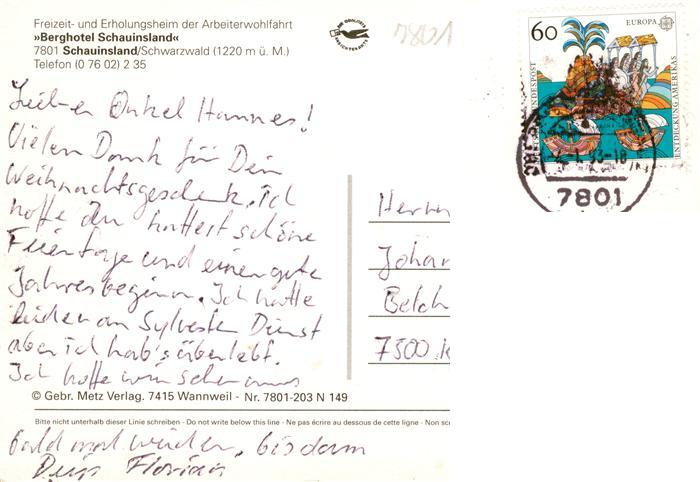 Freizeit- und Erholungsheim der Arbeiterwohlfahrt
»Berghotel Schauinsland«
7801 Schauinsland/Schwarzwald (1220 m ü. M.)
Telefon (0 76 02) 2 35
7801
60
EUROPA
DEUTSCHE BUNDESPOST
ENTDECKUNG AMERIKAS
7801
Lieber Onkel Hannes!
Vielen Dank für Dein
Weihnachtsgeschenk. Ich
hoffe Du hattest schöne
Feiertage und einen gute
Jahresbeginn. Ich hatte
leider an Sylvester Dienst
aber ich hab's überlebt.
Ich hoffe wir sehen uns
Herrn
Johan
Belch
7500 K
© Gebr. Metz Verlag. 7415 Wannweil - Nr. 7801-203 N 149
Bitte nicht unterhalb dieser Linie schreiben - Do not write below this line - Ne pas écrire au dessous de cette ligne - Non sc
bald mal wieder, bis dann
Dein Florian